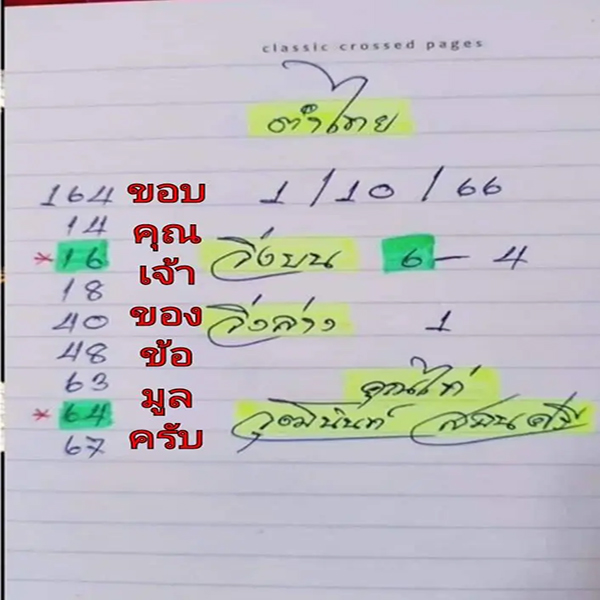 classic crossed pages
ตำไทย
164 ขอบ 1/10/66
14 คุณ
*16 เจ้า วิ่งบน 6-4
18
40 ของ วิ่งล่าง 1
48 ข้อ
63 มูล
*64
67 ครับ